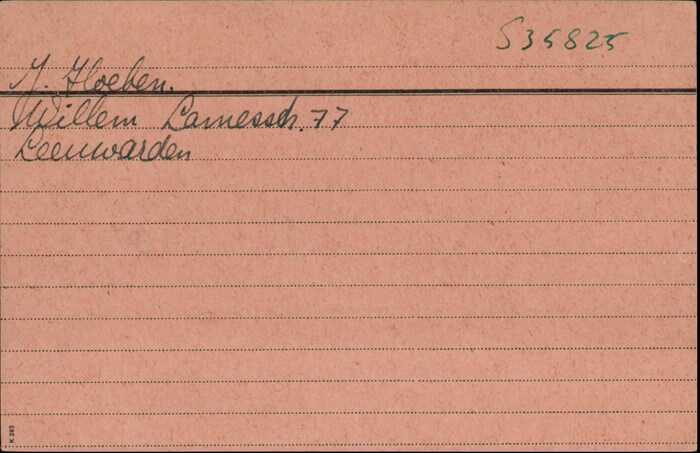 535825
J. Hoeben.
Willem Lamesstr. 77
Leeuwarden
K 283